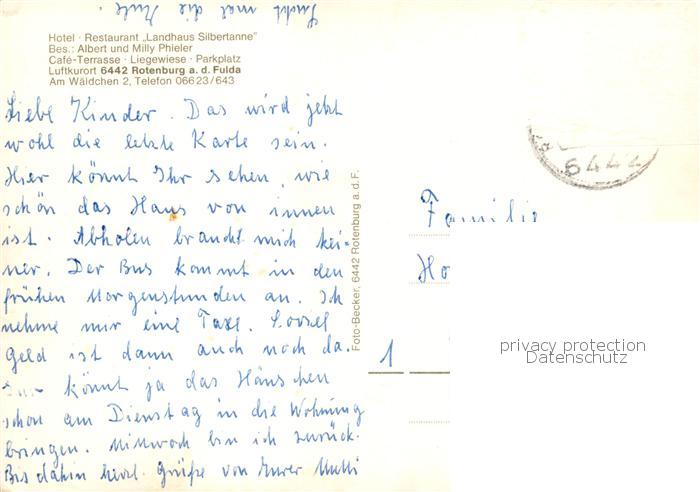 Sucht mal die
Hotel · Restaurant „Landhaus Silbertanne"
Bes.: Albert und Milly Phieler
Café-Terrasse · Liegewiese · Parkplatz
Luftkurort 6442 Rotenburg a. d. Fulda
Am Wäldchen 2, Telefon 06623/643
Liebe Kinder. Das wird jetzt
wohl die letzte Karte sein.
Hier könnt Ihr sehen, wie
schön das Haus von innen
ist. Abholen braucht mich kei=
ner. Der Bus kommt in den
frühen Morgenstunden an. Ich
nehme mir eine Taxe. Soviel
Geld ist dann auch noch da.
könnt ja das Häuschen
schon am Dienstag in die Wohnung
bringen. Mittwoch bin ich zurück.
Bis dahin herzl. Grüße von Eurer Mutti
Foto-Becker, 6442 Rotenburg a. d. F.
6442
Familie
Ho
1
privacy protection
Datenschutz